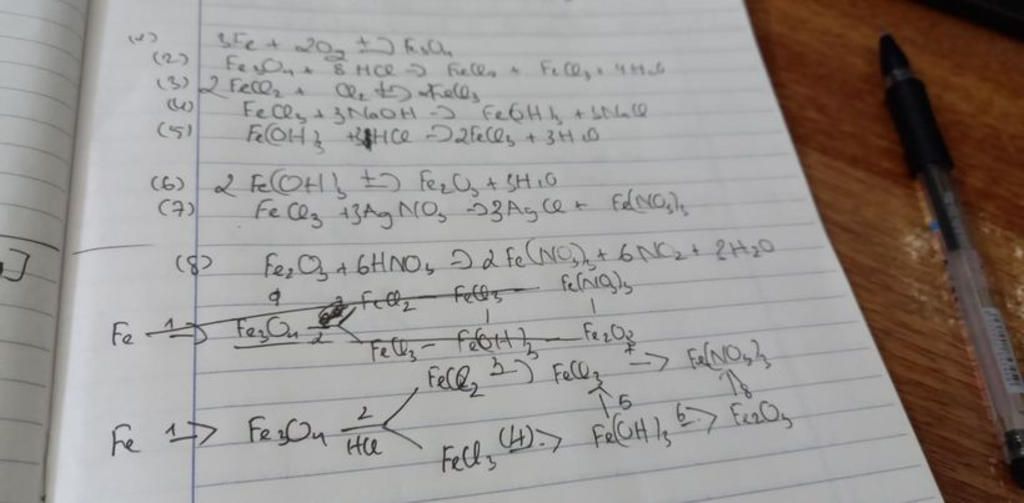 (1) 3Fe + 2O2 t°-> Fe3O4
(2) Fe3O4 + 8 HCl -> FeCl2 + FeCl3 + 4H2O
(3) 2 FeCl2 + Cl2 t°-> 2FeCl3
(4) FeCl3 + 3NaOH -> Fe(OH)3 + 3NaCl
(5) Fe(OH)3 + 3HCl -> 2FeCl3 + 3H2O
(6) 2 Fe(OH)3 t°-> Fe2O3 + 3H2O
(7) FeCl3 + 3AgNO3 -> 3AgCl + Fe(NO3)3
(8) Fe2O3 + 6HNO3 -> 2Fe(NO3)3 + 6NO2 + 2H2O
FeCl2 — FeCl3 — Fe(NO3)3
Fe 1-> Fe3O4 2
FeCl3 — Fe(OH)3 — Fe2O3
FeCl2 3-> FeCl3 7-> Fe(NO3)3
Fe 1-> Fe3O4 2 HCl
5 8
FeCl3 (4)-> Fe(OH)3 6-> Fe2O3